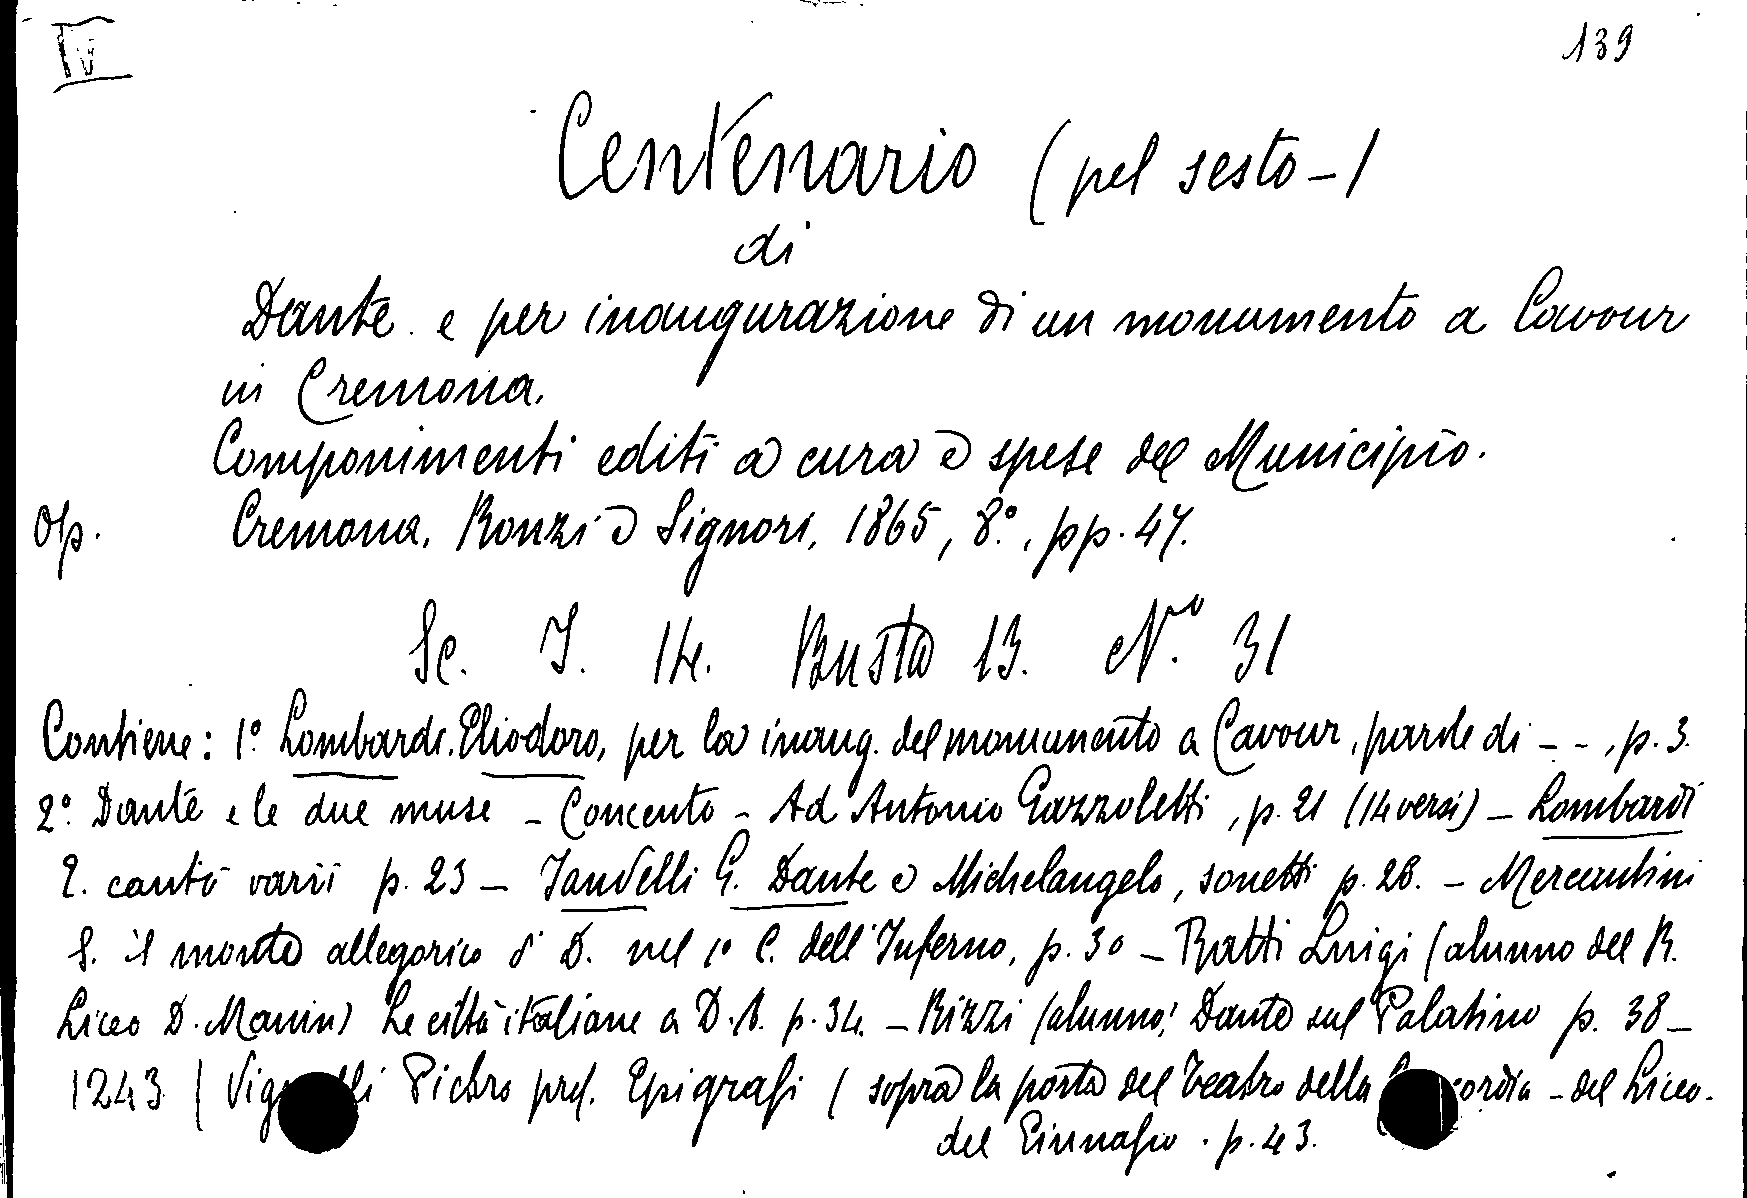 IV 139
Centenario (pel sesto-)
di
Dante e per inaugurazione di un monumento a Cavour
in Cremona.
Componimenti editi a cura e spese del Municipio.
Op. Cremona, Ronzi e Signori, 1865, 8.°, pp. 47.
Sc. I. 14. Busta 13. N.° 31
Contiene: 1° Lombardi. Eliodoro, per la inaug. del monumento a Cavour, parole di - -, p. 3.
2° Dante e le due muse - Concento - Ad Antonio Gazzoletti, p. 21 (14 versi) - Lombardi
E. canti varii p. 23 - Jandelli G. Dante e Michelangelo, sonetti p. 28. - Mercantini
L. il monte allegorico di D. nel 1° C. dell'Inferno, p. 30 - Ratti Luigi (alunno del R.
Liceo D. Manin) Le città italiane a D. A. p. 34. - Rizzi (alunno) Dante sul Palatino p. 38 -
1243 ( Pietro prof. Epigrafi ( sopra la porta del Teatro della - del Liceo.
del Ginnasio. p. 43.